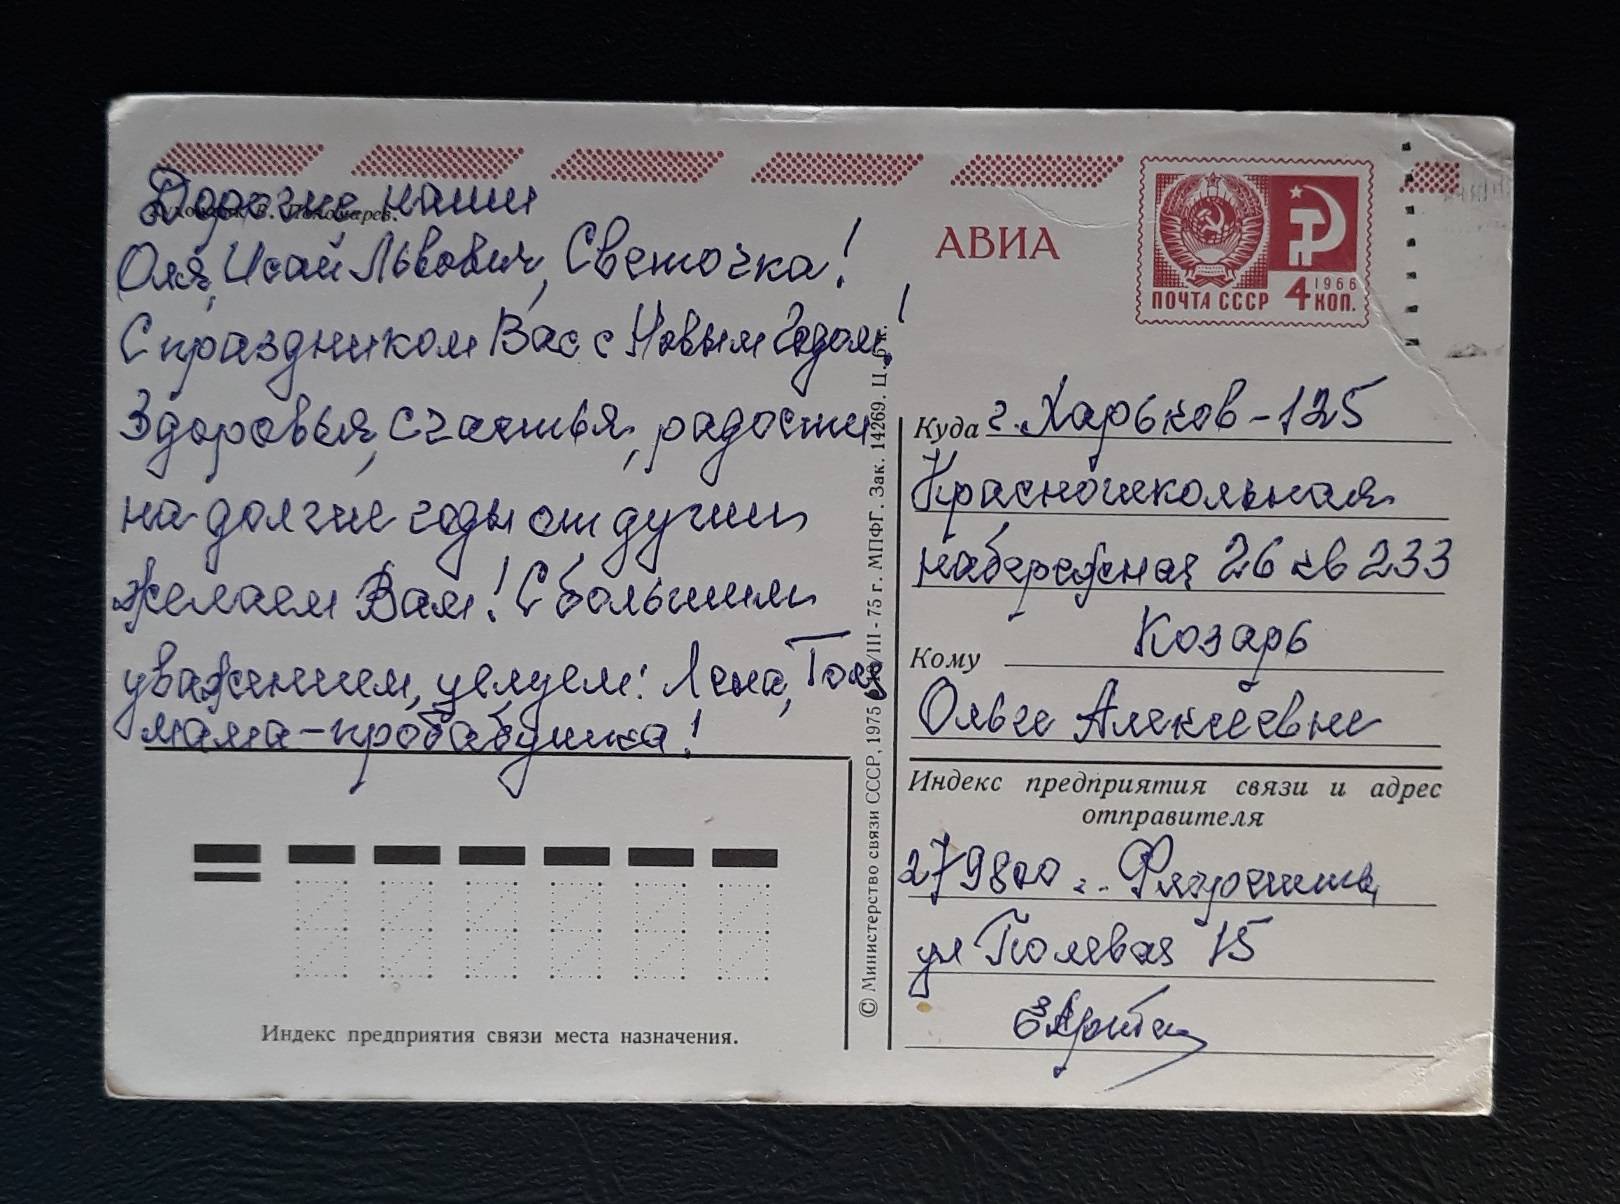 Дорогие наши
Оля, Исай Львович, Светочка!
С праздником Вас с Новым Годом!
Здоровья, счастья, радости
на долгие годы от души
желаем Вам! С большим
уважением, целуем: Лена, Толя
мама-прабабушка!
АВИА
ПОЧТА СССР 4 КОП.
1966
Куда г. Харьков-125
Красношкольная
набережная 26 кв 233
Кому Козарь
Ольге Алексеевне
Индекс предприятия связи и адрес
отправителя
279800 г.
ул Полевая 15
Индекс предприятия связи места назначения.
© Министерство связи СССР, 1975 /III-75 г. МПФГ. Зак. 14269. Ц.